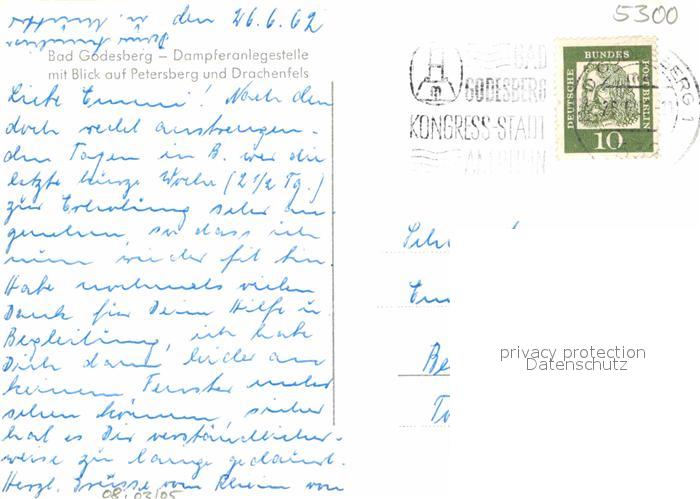 den 26.6.62
Bad Godesberg – Dampferanlegestelle
mit Blick auf Petersberg und Drachenfels
Liebe Emmi! Nach den
doch recht anstrengen-
den Tagen in B. war die
letzte kurze Woche (2 1/2 Tg.)
zur Erholung sehr an-
genehm, so dass ich
nun wieder fit bin.
Habe nochmals vielen
Dank für Deine Hilfe u.
Begleitung, ich habe
Dich dann leider an
keinem Fenster mehr
sehen können, sicher
hat es Dir verständlicher-
weise zu lange gedauert.
Herzl. Grüsse vom Rhein von
08.03/05
5300
BAD
GODESBERG
KONGRESS-STADT
AM RHEIN
DEUTSCHE BUNDESPOST BERLIN
10
Be
privacy protection
Datenschutz